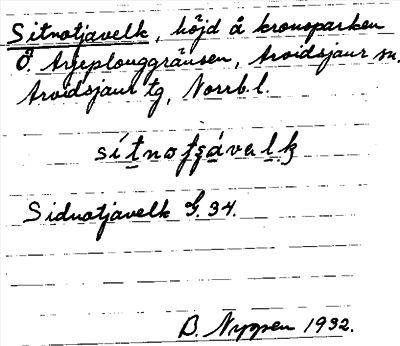 Sitnotjavelk, höjd å kronoparken
Ö. Arjeplouggränsen, Arvidsjaur sn,
Arvidsjaur tg, Norrb. l.
sítnofsávalk
Sidnotjavelk G. 34.
B. Nyppen 1932.